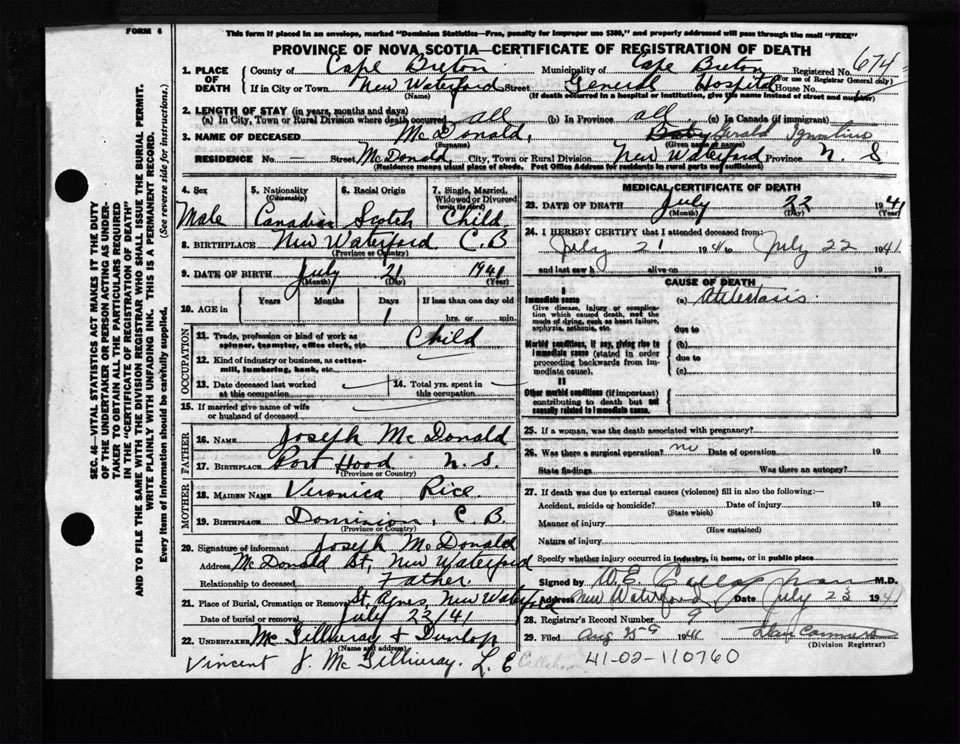 FORM 6
This form if placed in an envelope, marked "Dominion Statistics—Free, penalty for improper use $300," and properly addressed will pass through the mail "FREE"
PROVINCE OF NOVA SCOTIA—CERTIFICATE OF REGISTRATION OF DEATH
1. PLACE OF DEATH
County of Cape Breton Municipality of Cape Breton Registered No. 674
(For use of Registrar General only)
If in City or Town New Waterford Street General Hospital House No.
(Name) (If death occurred in a hospital or institution, give the name instead of street and number)
2. LENGTH OF STAY (in years, months and days)
(a) In City, Town or Rural Division where death occurred all (b) In Province all (c) In Canada (if immigrant)
3. NAME OF DECEASED McDonald, Baby Gerald Ignatius
(Surname) (Given name or names)
RESIDENCE No. — Street McDonald City, Town or Rural Division New Waterford Province N. S
(Residence means usual place of abode. Post Office Address for residents in rural parts not sufficient)
SEC. 46—VITAL STATISTICS ACT MAKES IT THE DUTY
OF THE UNDERTAKER OR PERSON ACTING AS UNDER-
TAKER TO OBTAIN ALL THE PARTICULARS REQUIRED
IN THE "CERTIFICATE OF REGISTRATION OF DEATH"
AND TO FILE THE SAME WITH THE DIVISION REGISTRAR WHO SHALL ISSUE THE BURIAL PERMIT.
WRITE PLAINLY WITH UNFADING INK. THIS IS A PERMANENT RECORD.
Every item of information should be carefully supplied. (See reverse side for instructions.)
4. Sex
Male
5. Nationality
(Citizenship)
Canadian
6. Racial Origin
Scotch
7. Single, Married,
Widowed or Divorced
(write the word)
Child
8. BIRTHPLACE New Waterford C.B
(Province or Country)
9. DATE OF BIRTH July 21 1941
(Month) (Day) (Year)
10. AGE in
Years Months Days If less than one day old
1 hrs. or min.
OCCUPATION
11. Trade, profession or kind of work as
spinner, teamster, office clerk, etc. Child
12. Kind of industry or business, as cotton-
mill, lumbering, bank, etc.
13. Date deceased last worked
at this occupation
14. Total yrs. spent in
this occupation
15. If married give name of wife
or husband of deceased
FATHER
16. NAME Joseph McDonald
17. BIRTHPLACE Port Hood N. S.
(Province or Country)
MOTHER
18. MAIDEN NAME Veronica Rice
19. BIRTHPLACE Dominion, C. B.
(Province or Country)
20. Signature of informant Joseph McDonald
Address McDonald St, New Waterford
Relationship to deceased Father
21. Place of Burial, Cremation or Removal St. Agnes, New Waterford
Date of burial or removal July 23/41
22. UNDERTAKER McGillivray & Dunlop
(Name and address)
Vincent J. McGillivray. L. E
MEDICAL CERTIFICATE OF DEATH
23. DATE OF DEATH July 22 1941
(Month) (Day) (Year)
24. I HEREBY CERTIFY that I attended deceased from:
July 21 1941 to July 22 1941
and last saw h alive on 19
CAUSE OF DEATH
I
Immediate cause
Give disease, injury or complica-
tion which caused death, not the
mode of dying, such as heart failure,
asphyxia, asthenia, etc.
(a) Atelectasis
due to
Morbid conditions, if any, giving rise to
immediate cause (stated in order
proceeding backwards from im-
mediate cause).
(b)
due to
(c)
II
Other morbid conditions (if important)
contributing to death but not
causally related to immediate cause.
25. If a woman, was the death associated with pregnancy?
26. Was there a surgical operation? no Date of operation 19
State findings Was there an autopsy?
27. If death was due to external causes (violence) fill in also the following:—
Accident, suicide or homicide? Date of injury 19
(State which)
Manner of injury
(How sustained)
Nature of injury
Specify whether injury occurred in industry, in home, or in public place
Signed by W.E. Callaghan M.D.
Address New Waterford Date July 23 1941
28. Registrar's Record No. 9
29. Filed Aug 1941
(Division Registrar)
Callahan 41-02-110760